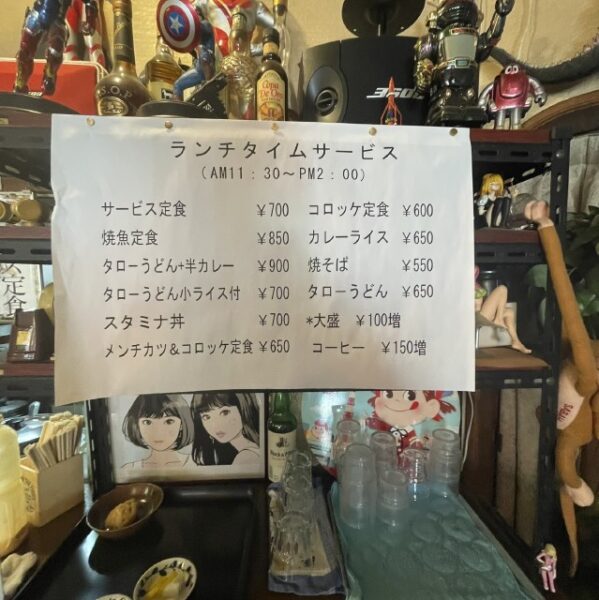 ランチタイムサービス
(AM11:30～PM2:00)
サービス定食 ￥700 コロッケ定食 ￥600
焼魚定食 ￥850 カレーライス ￥650
タローうどん+半カレー ￥900 焼そば ￥550
タローうどん小ライス付 ￥700 タローうどん ￥650
スタミナ丼 ￥700 *大盛 ￥100増
メンチカツ＆コロッケ定食 ￥650 コーヒー ￥150増
定食